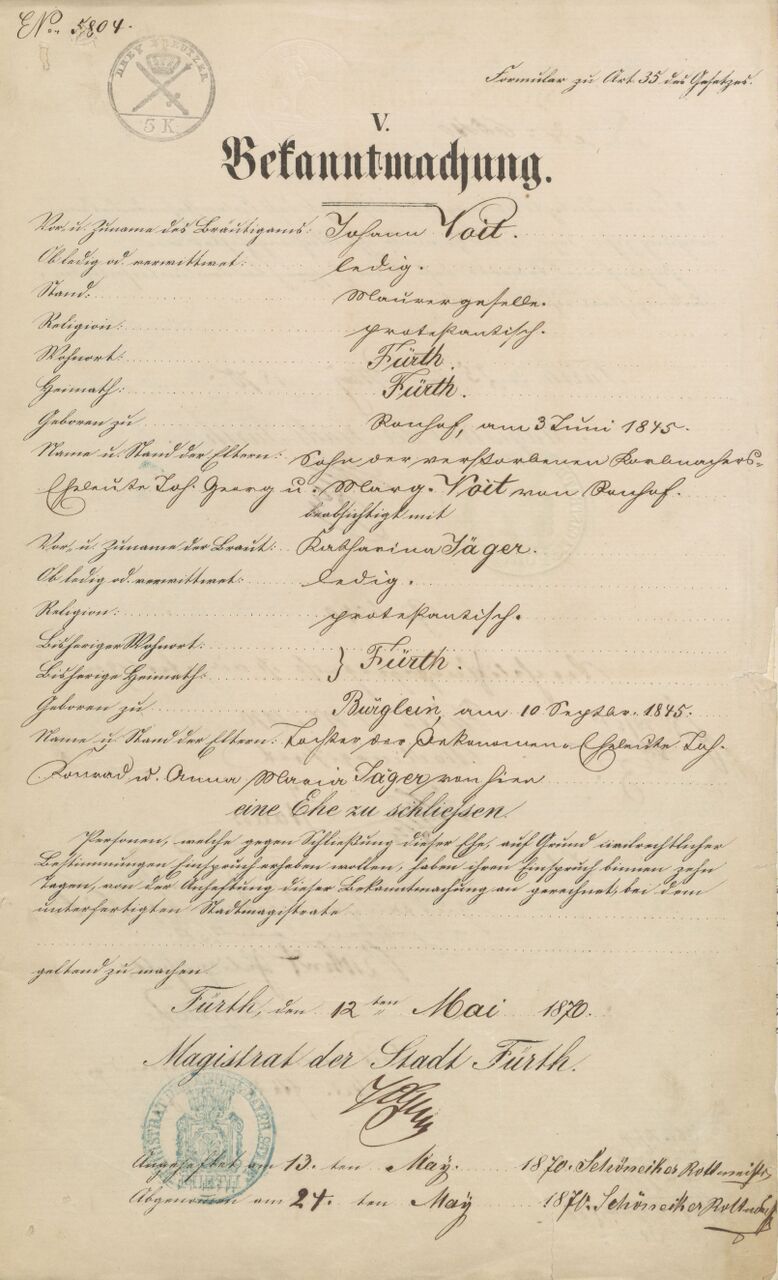 E No. 5804.
DREY KREUZER
5 K
Formular zu Art. 35 des Gesetzes.
V.
Bekanntmachung.
Vor- u. Zuname des Bräutigams: Johann Voit.
Ob ledig od. verwittwet: ledig.
Stand: Maurergeselle.
Religion: protestantisch.
Wohnort: Fürth.
Heimath: Fürth.
Geboren zu Ronhof, am 3 Juni 1845.
Name u. Stand der Eltern: Sohn der verstorbenen Korbmachers-
Eheleute Joh. Georg u. Marg. Voit von Ronhof.
beabsichtigt mit
Vor- u. Zuname der Braut: Katharina Jäger.
Ob ledig od. verwittwet: ledig.
Religion: protestantisch.
Bisheriger Wohnort:
Bisherige Heimath: } Fürth.
Geboren zu Bürglein, am 10 Septbr. 1845.
Name u. Stand der Eltern: Tochter der Oekonomen-Eheleute Joh.
Konrad u. Anna Maria Jäger von hier
eine Ehe zu schliessen.
Personen, welche gegen Schließung dieser Ehe, auf Grund civilrechtlicher
Bestimmungen Einspruch erheben wollen, haben ihren Einspruch binnen zehn
Tagen, von der Anheftung dieser Bekanntmachung an gerechnet, bei dem
unterfertigten Stadtmagistrate
geltend zu machen
Fürth, den 12ten Mai 1870.
Magistrat der Stadt Fürth.
Angeheftet am 13. ten May. 1870. Schöneiker Rottmeister
Abgenomen am 24. ten May 1870. Schöneiker Rottmstr